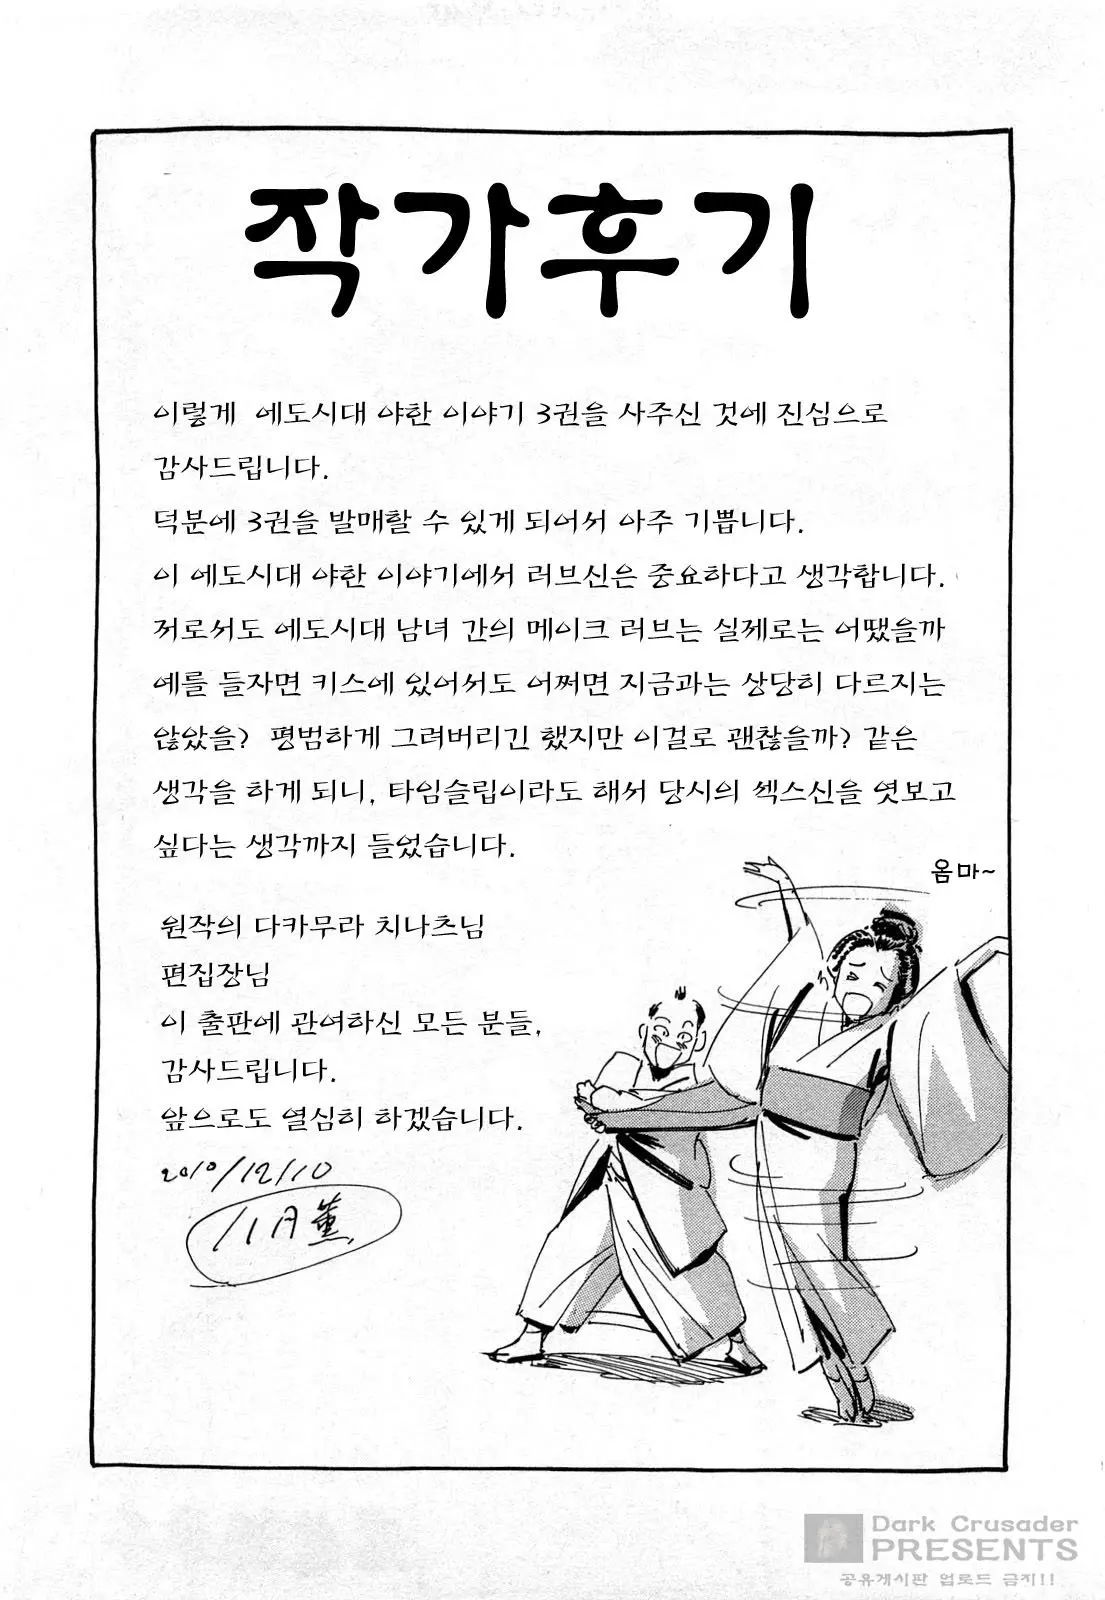 작가후기
이렇게 에도시대 야한 이야기 3권을 사주신 것에 진심으로
감사드립니다.
덕분에 3권을 발매할 수 있게 되어서 아주 기쁩니다.
이 에도시대 야한 이야기에서 러브신은 중요하다고 생각합니다.
저로서도 에도시대 남녀 간의 메이크 러브는 실제로는 어땠을까
예를 들자면 키스에 있어서도 어쩌면 지금과는 상당히 다르지는
않았을? 평범하게 그려버리긴 했지만 이걸로 괜찮을까? 같은
생각을 하게 되니, 타임슬립이라도 해서 당시의 섹스신을 엿보고
싶다는 생각까지 들었습니다.
옴마~
원작의 다카무라 치나츠님
편집장님
이 출판에 관여하신 모든 분들,
감사드립니다.
앞으로도 열심히 하겠습니다.
2010/12/10
八月薫
Dark Crusader
PRESENTS
공유게시판 업로드 금지!!